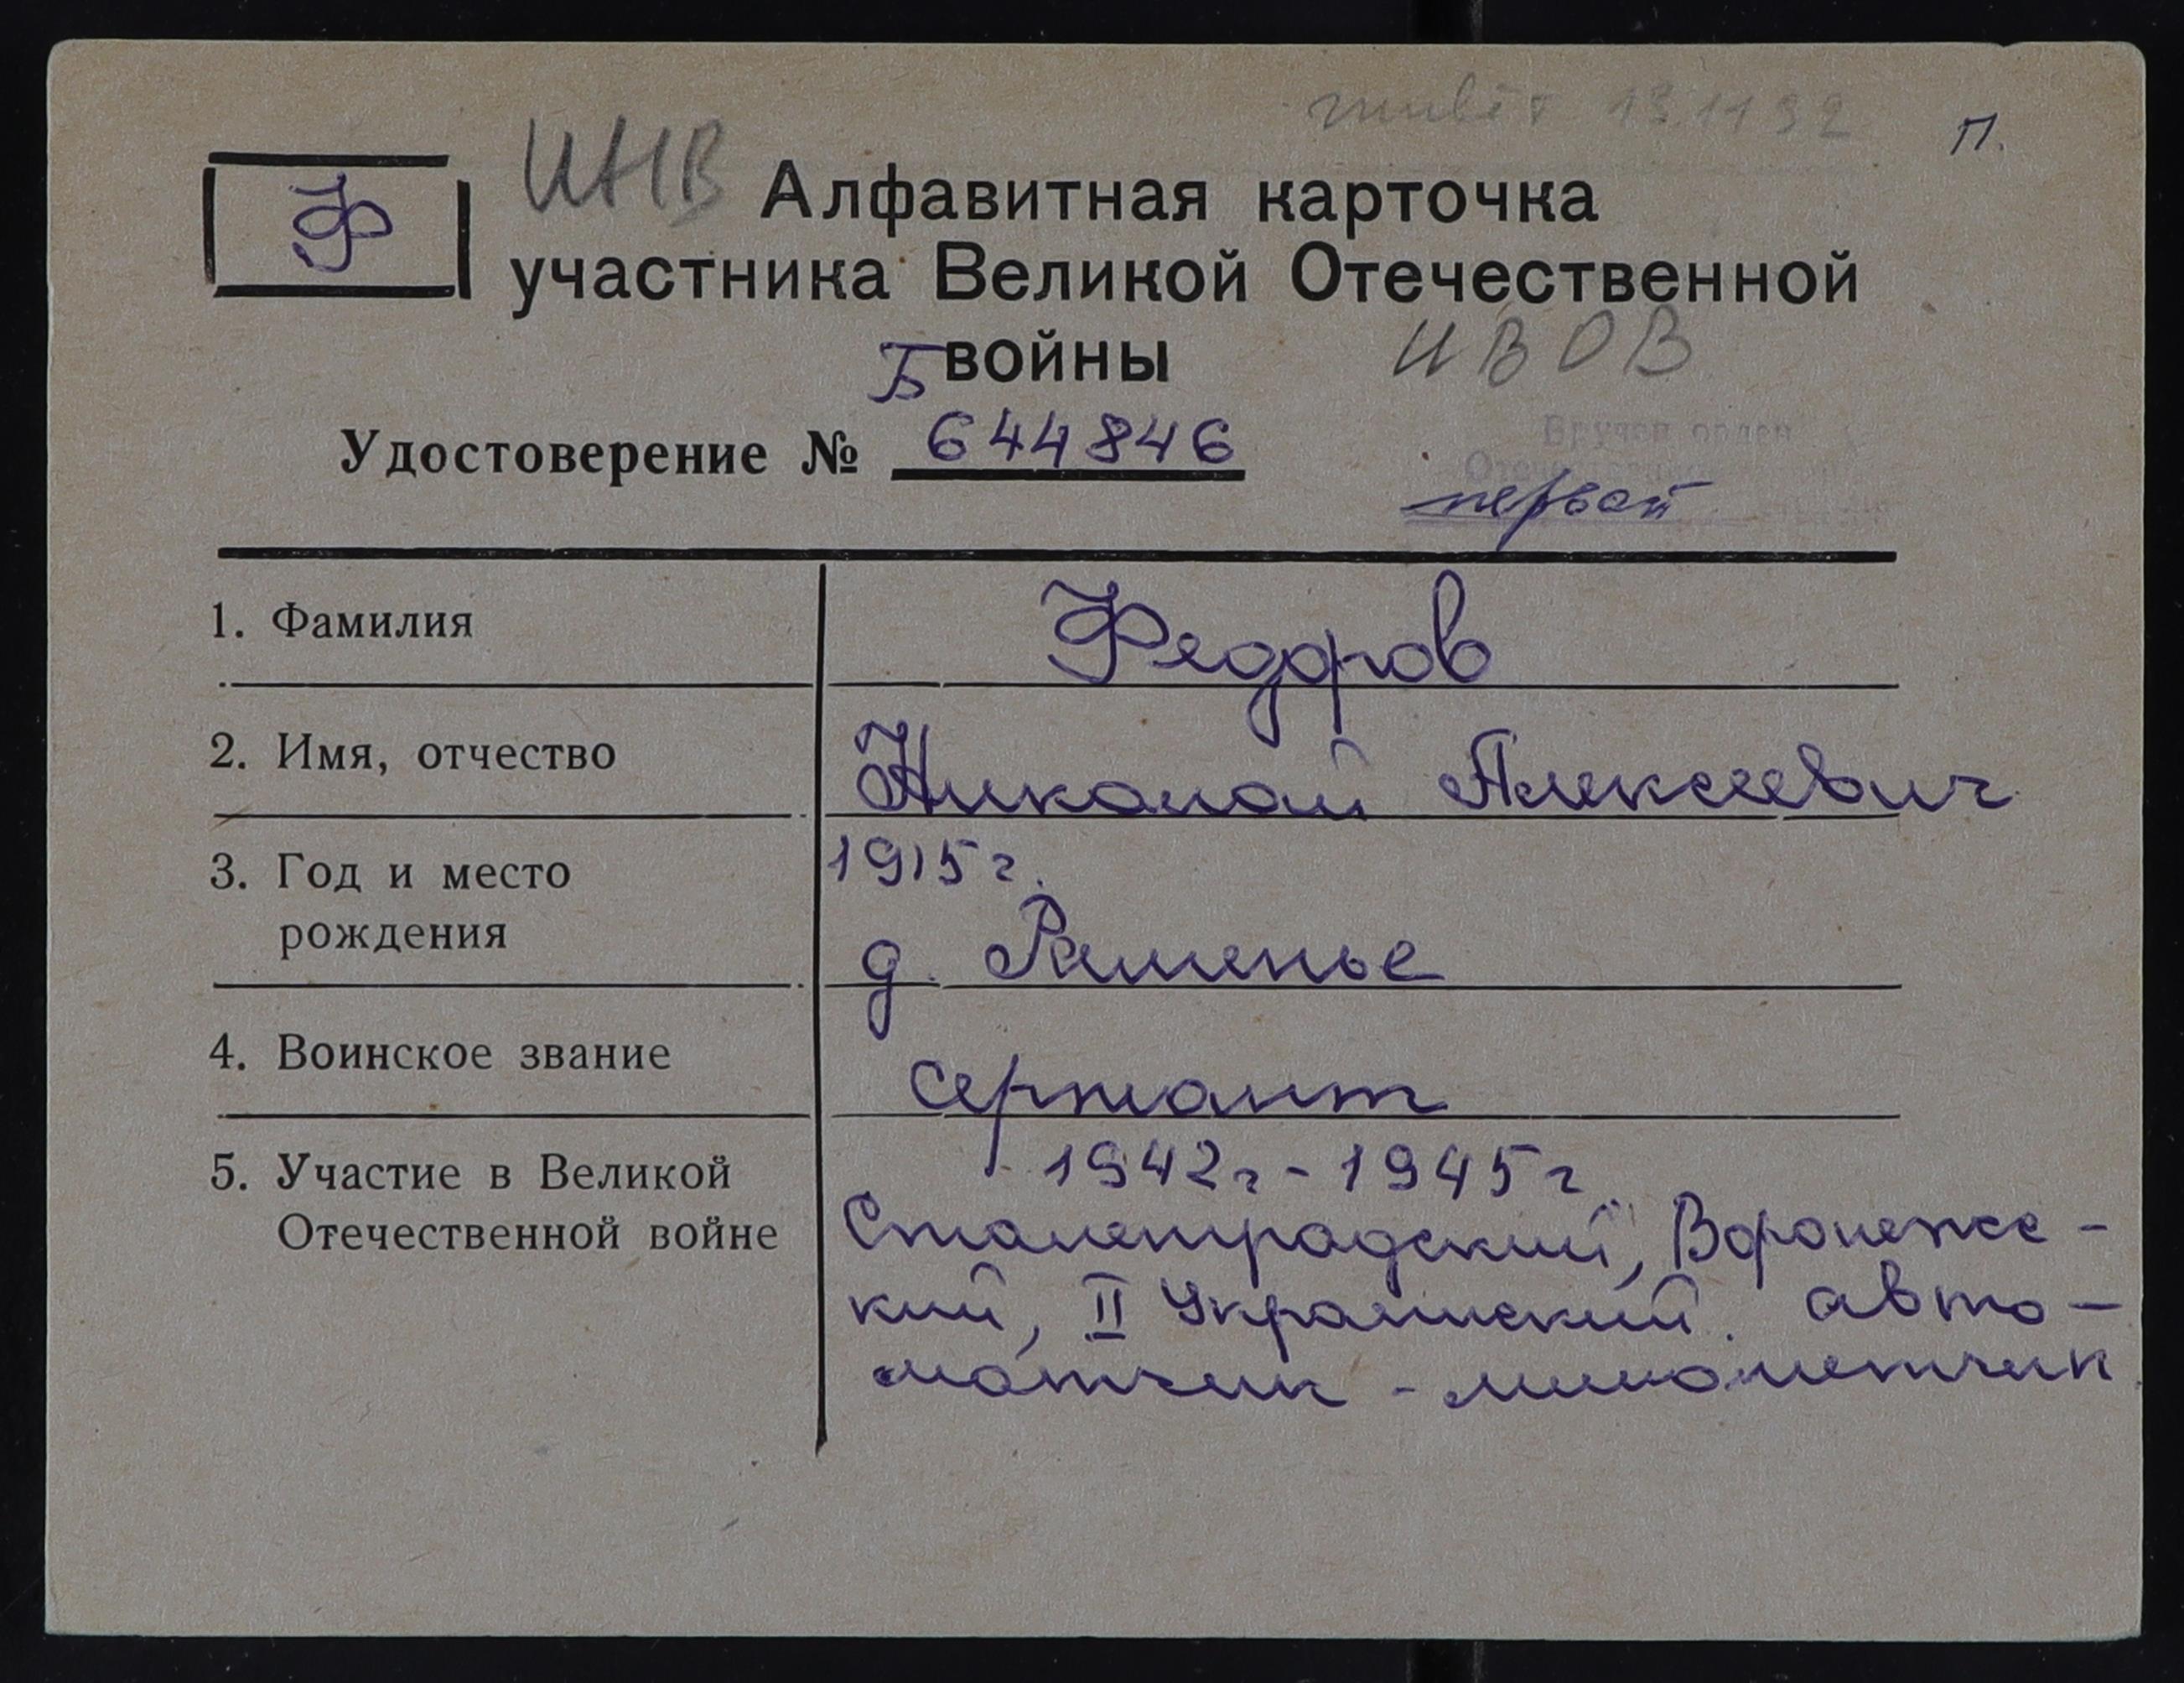 живёт 13.11 92
П.
Ф
ИНВ
Алфавитная карточка
участника Великой Отечественной
войны
ИВОВ
Б
Удостоверение № 644846
Вручен орден
первой
1. Фамилия
Федоров
2. Имя, отчество
Николай Алексеевич
3. Год и место
рождения
1915 г.
д. Раменье
4. Воинское звание
сержант
5. Участие в Великой
Отечественной войне
1942 г - 1945 г.
Сталенградский, Воронежс-
кий, II Украинский. авто-
матчик - минометчик